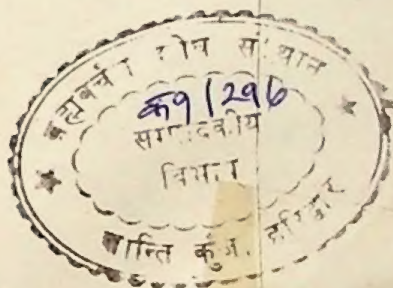 ब्रह्मवर्चस शोध संस्थान
क9/296
सम्पादकीय
विभाग
शान्ति कुंज, हरिद्वार